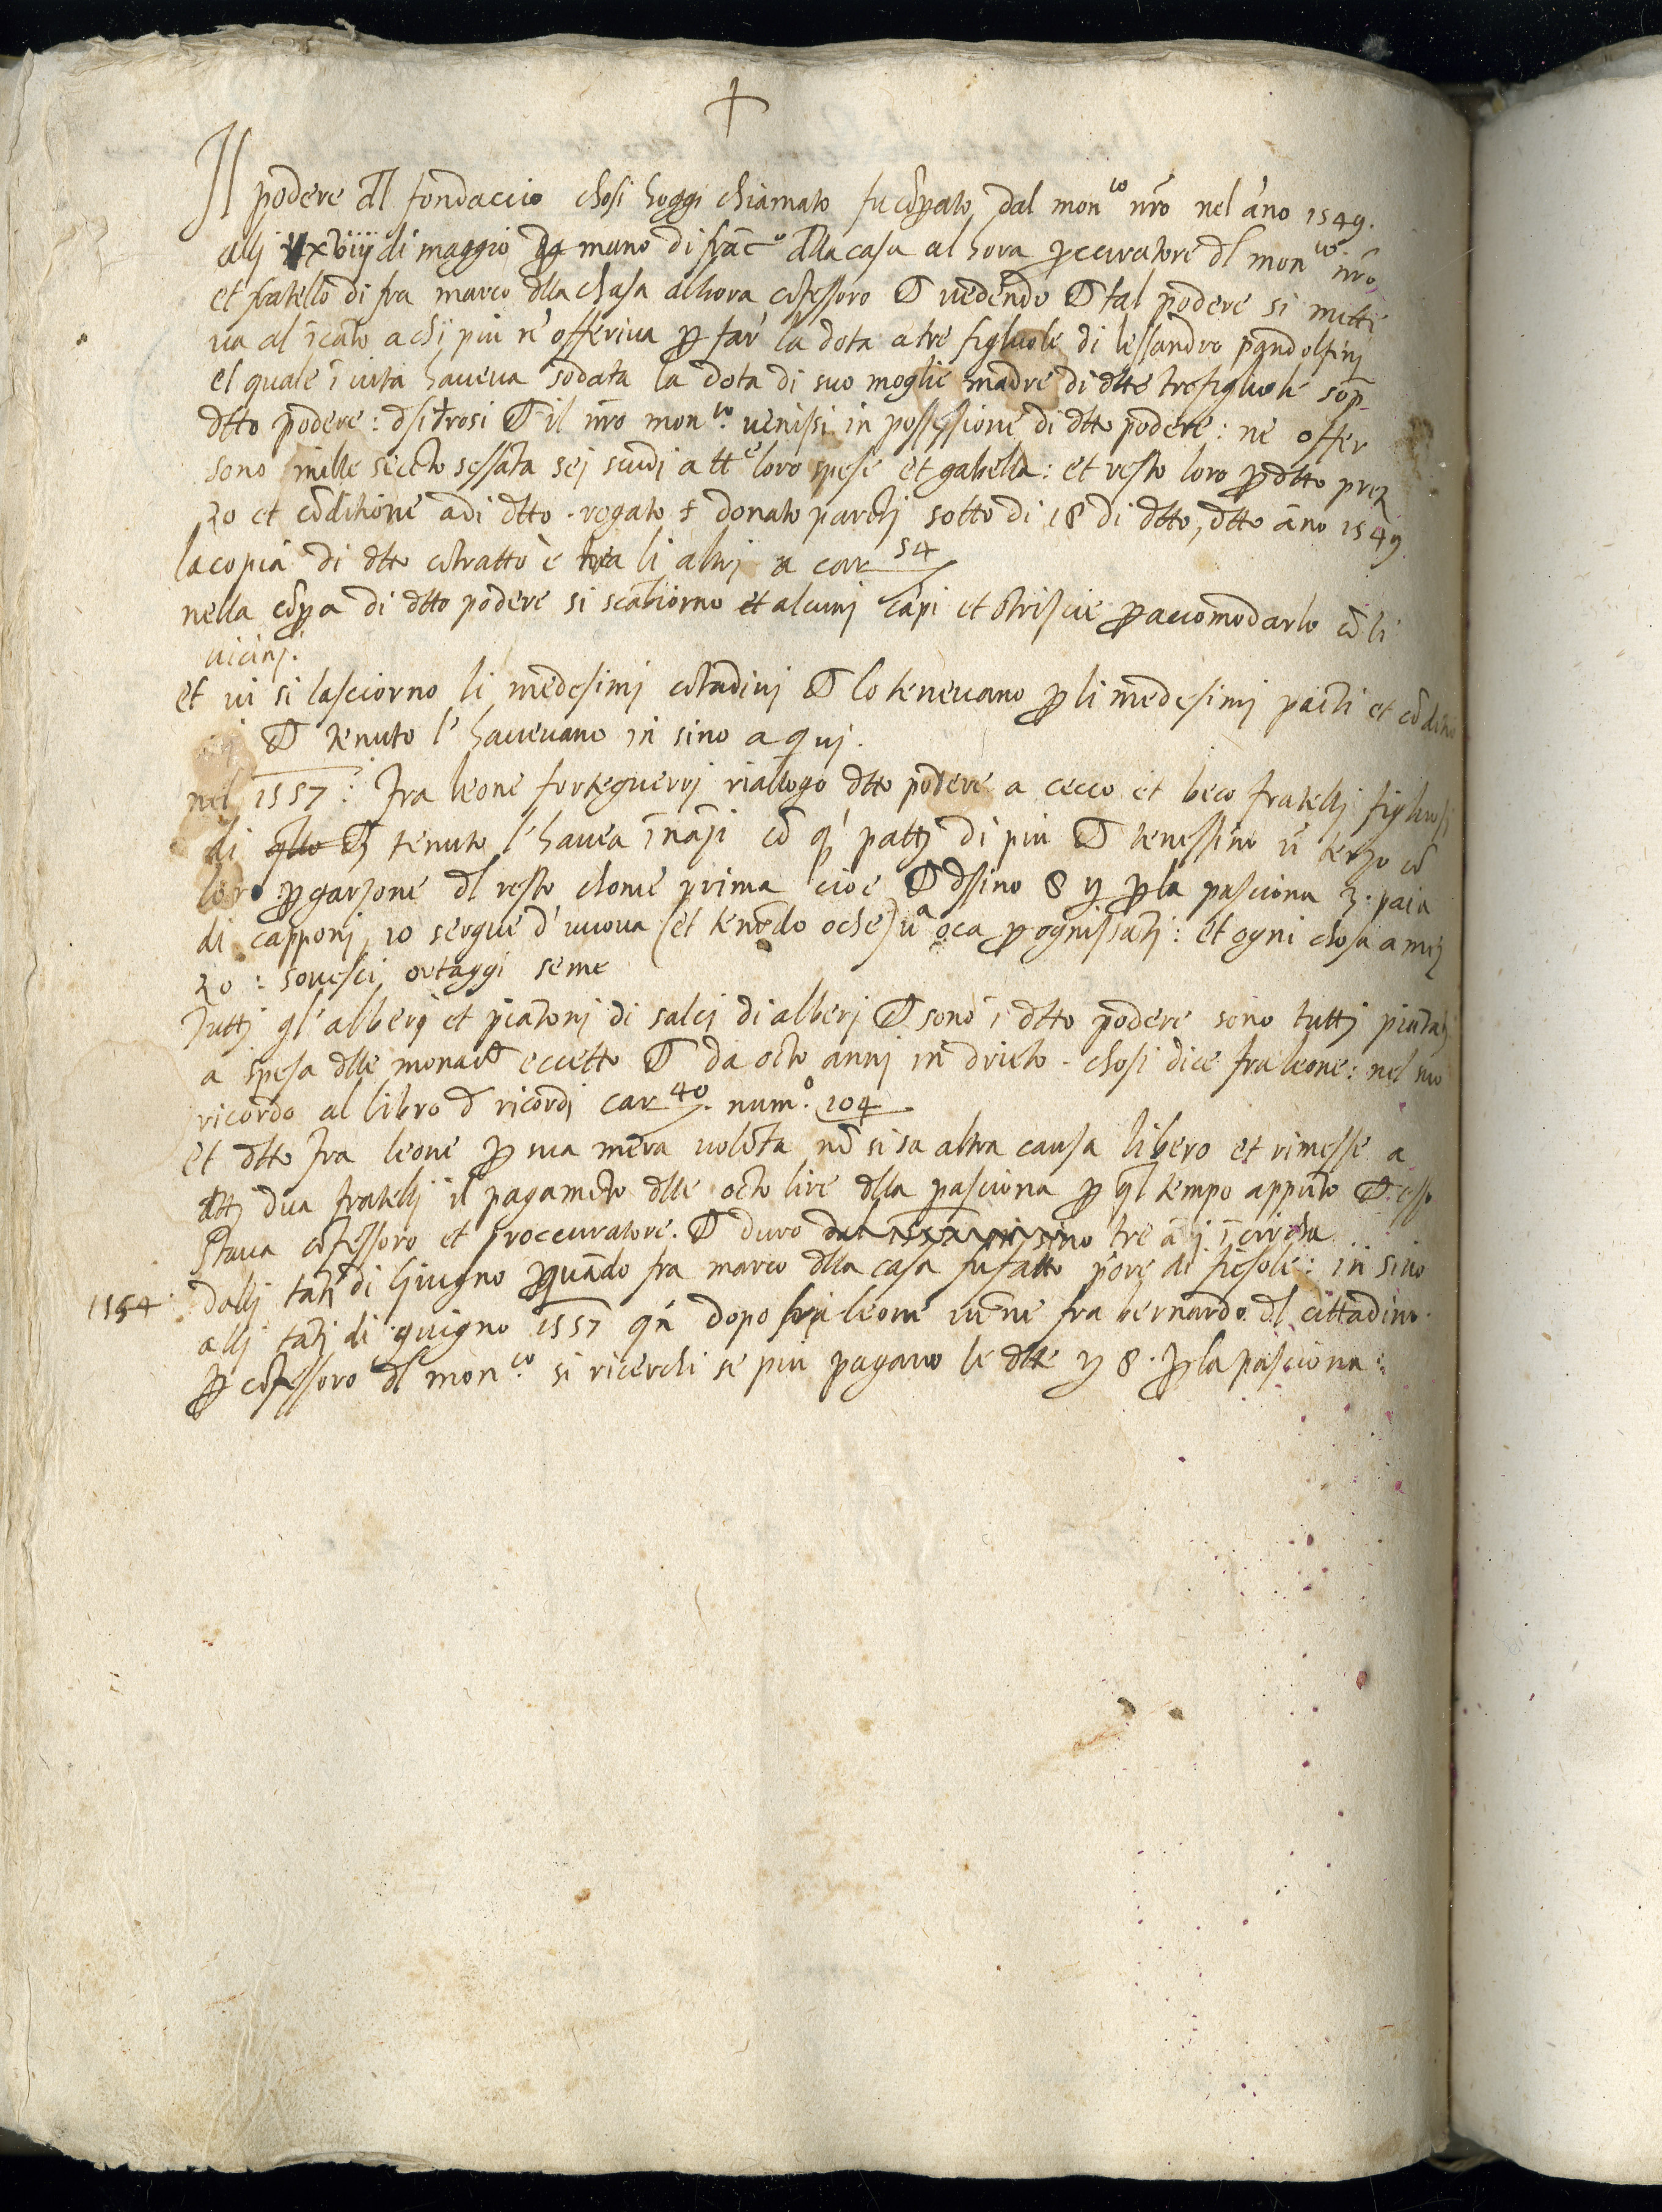 Il podere dl fondaccio chosi hoggi chiamato fu cõpato dal mon.to nr̃o nel ãno 1549.
alli xviij di maggio mano di frãc.o dlla casa al hora pccuratore dl mon.to nr̃o
et fratello di fra marco dlla chasa alhora cõfessoro ch vedendo ch tal podere si mette
va al ĩcãto a chi piu n'offeriva p far la dota a tre figluole di lessandro pandolfinj
el quale ĩ vita haveva sodata la dota di suo moglie madre di dtte tre figluole sop̃
dtto podere: ch il nr̃o mon.to venissi in possessione di dtto podere: ne offer
sono mille secẽto sessãta sej scudi a tt.e loro spese et gabella: et resto loro p dtto prez
zo et cõditione adi dtto. rogato s donato parẽtj sotto di 18 di dtto, dtto ãno 1549.
la copia di dtto cõtratto è tra li altrj a car 54
nella cõpa di dtto podere si scãbiorno et alcunj cãpi et striscie p accomodarlo cõ li
vicinj.
et vi si lasciorno li medesimj cõtadinj ch lo tenevano p li medesimj patti et cõditio
ch tenuto l'havevano in sino a quj.
nel 1557: fra leone forteguerrj riallogo dtto podere a cecco et beco fratellj figluoli
di tenuto l'havea ĩnãzi cõ q' pattj di piu ch tenessino ũ terzo cõ
loro p garzone dl resto chome prima cioe ch dsino 8 p la pasciona 3. paia
di capponj 10 serque d'uuova (et tenẽdo oche) ũa oca p ognissãtj: et ogni chosa a mez
zo: sovesci ortaggi seme
Tuttj gl'alberj et piãtonj di salcj di alberj ch sono ĩ dtto podere sono tuttj piãtatj
a spesa dlle monache eccetto ch da octo annj in drieto. chosi dice fra leone: nel suo
ricordo al libro d ricordi car 40. num.o 104
et dtto fra leone p sua mera volõta nõ si sa altra causa libero et rimesse a
dttj dua fratellj il pagamẽto dlle octo lire dlla pasciona p ql tempo appũto ch esso
stava cõfessoro et proccuratore. ch duro tre ãnj ĩ circha
1554. dallj tãtj di Giugno p quãdo fra marco dlla casa fu fatto p̃ore di fiesole: in sino
allj tãtj di giugno 1557 qñ dopo fra leone vẽne fra bernardo dl cittadino
p cõfessoro dl mon.to si ricerchi se piu pagano le dtte 8. p la pasciona: